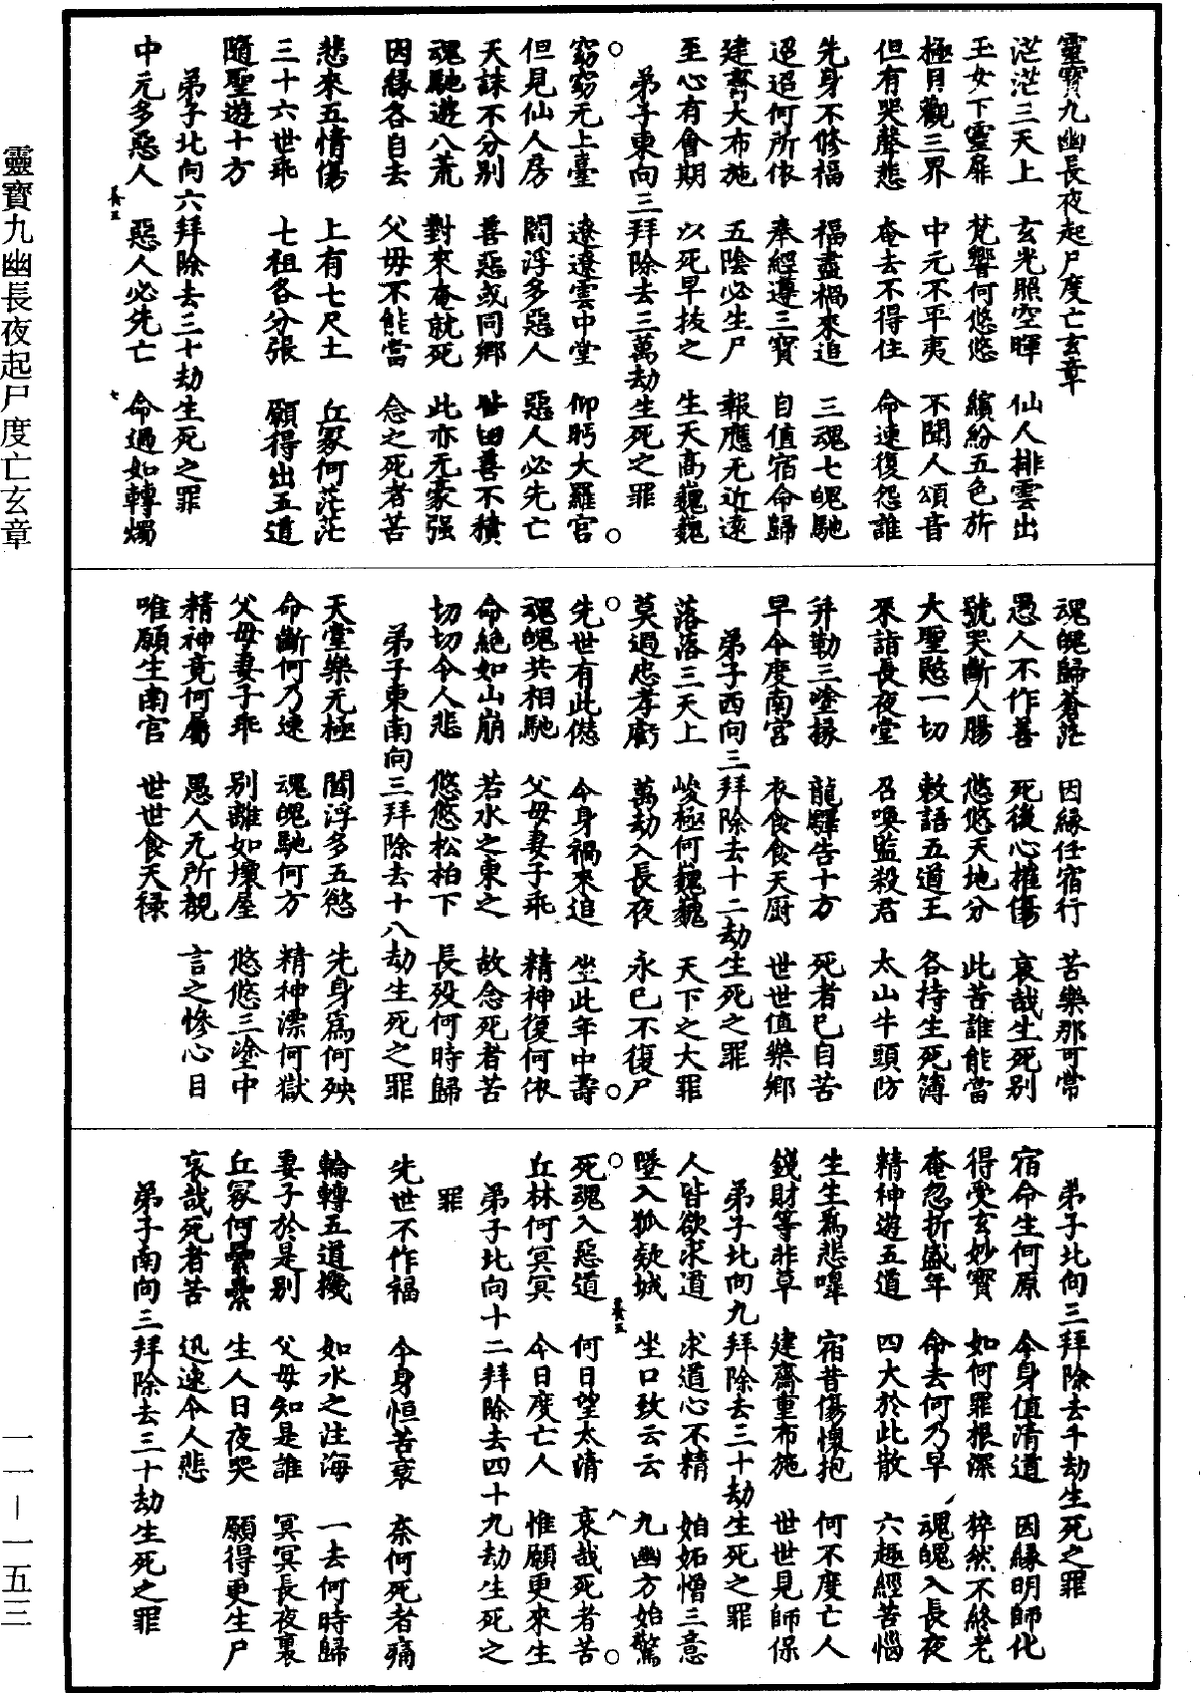 靈寶九幽長夜起尸度亡玄章
茫茫三天上 玄光照空暉 仙人排雲出
玉女下靈扉 梵響何悠悠 繽紛五色旂
極目觀三界 中元不平夷 不聞人頌音
但有哭聲悲 奄去不得住 命速復怨誰
先身不修福 福盡禍來追 三魂七魄馳
迢迢何所依 奉經遵三寶 自值宿命歸
建齋大布施 五陰必生尸 報應无近遠
至心有會期 以死早拔之 生天高巍巍
弟子東向三拜除去三萬劫生死之罪
窈窈元上臺 遼遼雲中堂 仰眄大羅宮
但見仙人房 閻浮多惡人 惡人必先亡
天誅不分別 善惡或同鄉 皆由善不積
魂馳遊八荒 對來奄就死 此亦无豪强
因緣各自去 父母不能當 念之死者苦
悲來五情傷 上有七尺土 丘冢何茫茫
三十六世乖 七祖各分張 願得出五道
隨聖遊十方
弟子北向六拜除去三十劫生死之罪
中元多惡人 惡人必先亡 命過如轉燭
長五 七
魂魄歸蒼茫 因緣任宿行 苦樂那可常
愚人不作善 死後心摧傷 哀哉生死別
號哭斷人腸 悠悠天地分 此苦誰能當
大聖愍一切 敕語五道王 各持生死簿
來詣長夜堂 召喚監殺君 太山牛頭防
并勒三塗掾 龍驛告十方 死者已自苦
早令度南宮 衣食食天厨 世世值樂鄉
弟子西向三拜除去十二劫生死之罪
落落三天上 峻極何巍巍 天下之大罪
莫過忠孝虧 萬劫入長夜 永已不復尸
先世有此僽 今身禍來追 坐此年中壽
魂魄共相馳 父母妻子乖 精神復何依
命絕如山崩 若水之東之 故念死者苦
切切令人悲 悠悠松柏下 長殁何時歸
弟子東南向三拜除去十八劫生死之罪
天堂樂无極 閻浮多五慾 先身爲何殃
命斷何乃速 魂魄馳何方 精神漂何獄
父母妻子乖 別離如壞屋 悠悠三塗中
精神竟何屬 愚人无所覩 言之慘心目
唯願生南宮 世世食天祿
弟子北向三拜除去千劫生死之罪
宿命生何原 今身值清道 因緣明師化
得受玄妙寶 如何罪根深 猝然不終老
奄忽折盛年 命去何乃早 魂魄入長夜
精神遊五道 四大於此散 六趣經苦惱
生生爲悲嘷 宿昔傷懷抱 何不度亡人
錢財等非草 建齋重布施 世世見師保
弟子北向九拜除去三十劫生死之罪
人皆欲求道 求道心不精 始妬憎三意
墜入狐欻城 坐口致云云 九幽方始驚
長五 八
死魂入惡道 何日望太清 哀哉死者苦
丘林何冥冥 今日度亡人 惟願更來生
弟子北向十二拜除去四十九劫生死之
罪
先世不作福 今身恒苦衰 奈何死者痛
輪轉五道機 如水之注海 一去何時歸
妻子於是別 父母知是誰 冥冥長夜裏
丘冢何纍纍 生人日夜哭 願得更生尸
哀哉死者苦 迅速令人悲
弟子南向三拜除去三十劫生死之罪
靈寶九幽長夜起尸度亡玄章
一一－一五三